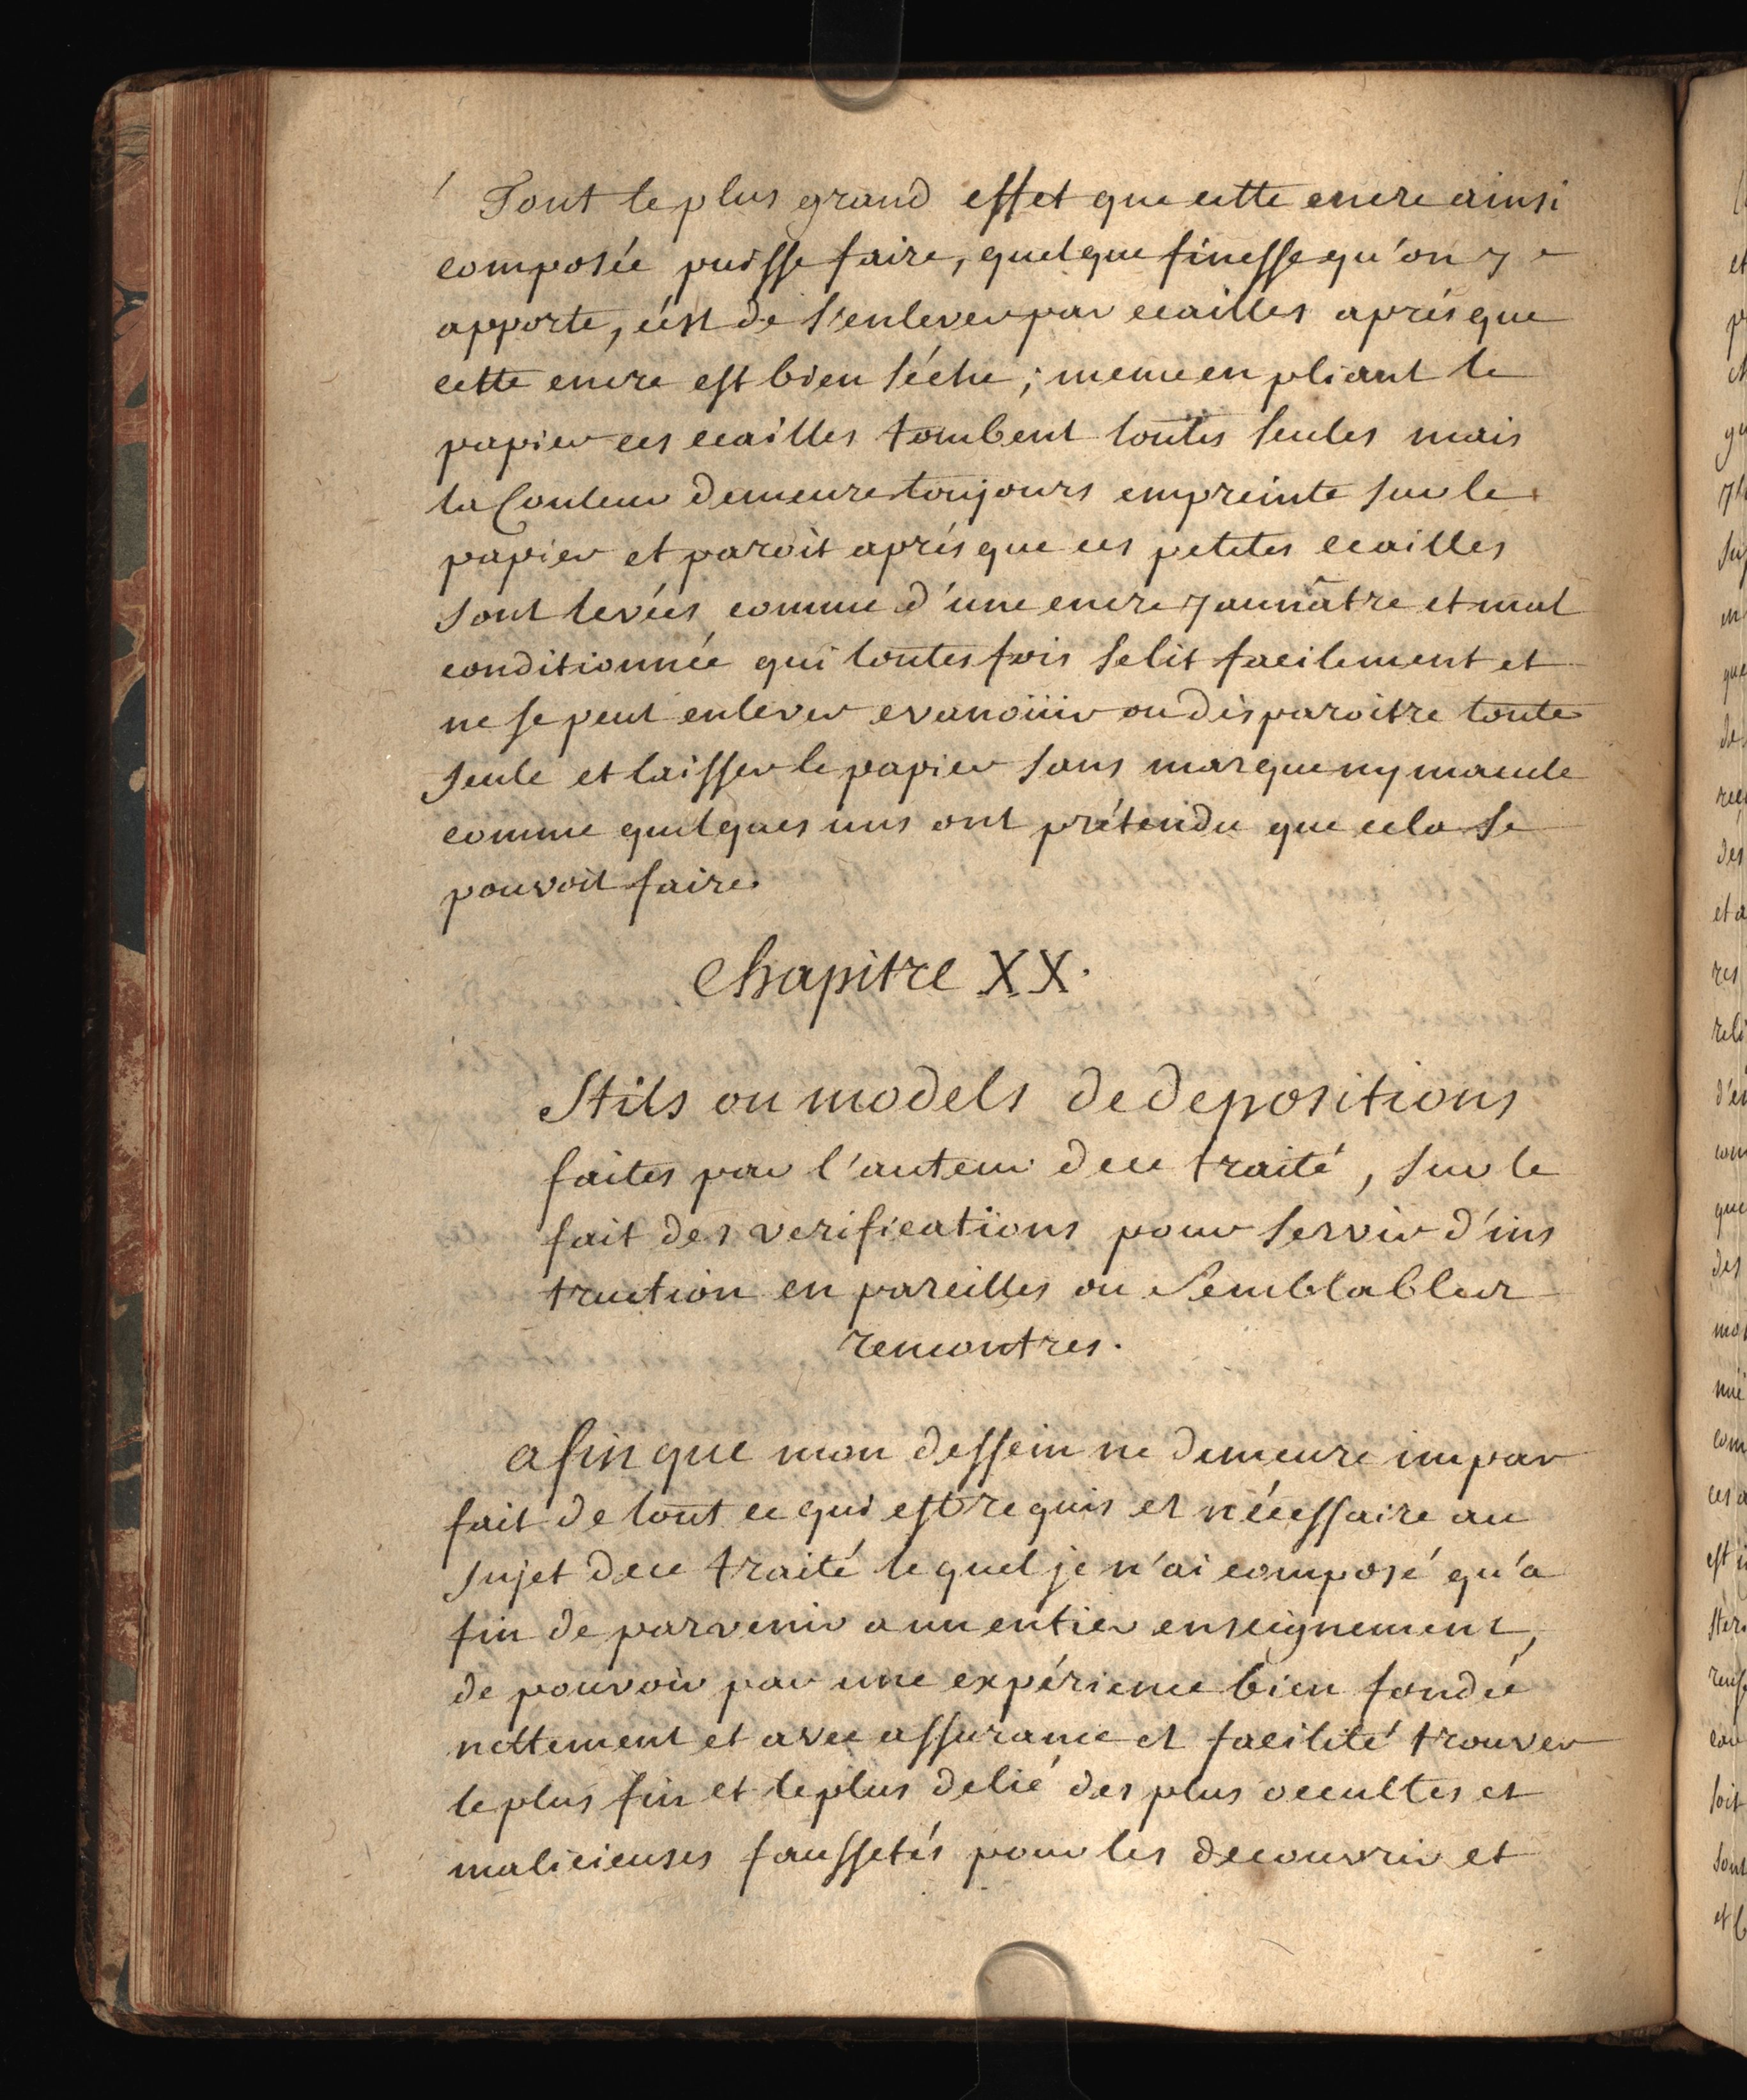 Tout le plus grand effet que cette encre ainsi
composée puisse faire, quelque finesse qu'on y
apporte, c'est de s'enlever par ecailles aprés que
cette encre est bien séche; meme en pliant le
papier ces ecailles tombent toutes seules mais
la Couleur demeure toujours empreinte sur le
papier et paroit aprés que ces petites ecailles
sont levées comme d'une encre jaunâtre et mal
conditionnée qui toutesfois se lit facilement et
ne se peut enlever evanoüir ou disparoitre toute
seule et laisser le papier sans marque ny macule
comme quelques uns ont prétendu que cela se
pouvoit faire.
Chapitre XX.
Stils ou models de depositions
faites par l'auteur de ce traité, sur le
fait des verifications pour servir d'ins
truction en pareilles ou semblables
rencontres.
afin que mon dessein ne demeure impar
fait de tout ce qui est requis et nécessaire au
sujet de ce traité lequel je n'ai composé qu'a
fin de parvenir a un entier enseignement,
de pouvoir par une expérience bien fondée
nettement et avec assurance et facilité trouver
le plus fin et le plus delié des plus occultes et
malicieuses faussetés pour les decouvrir et